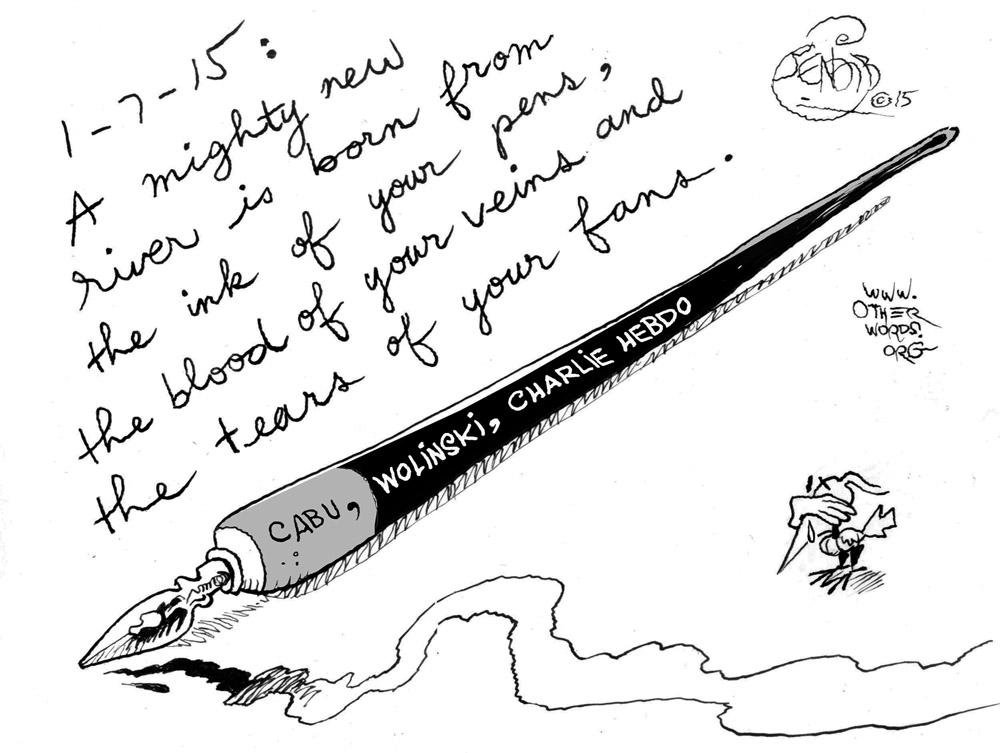 1-7-15:
A mighty new
river is born from
the ink of your pens,
the blood of your veins and
the tears of your fans.
BENDIB
©15
CABU, WOLINSKI, CHARLIE HEBDO
WWW.
OTHER
WORDS.
ORG